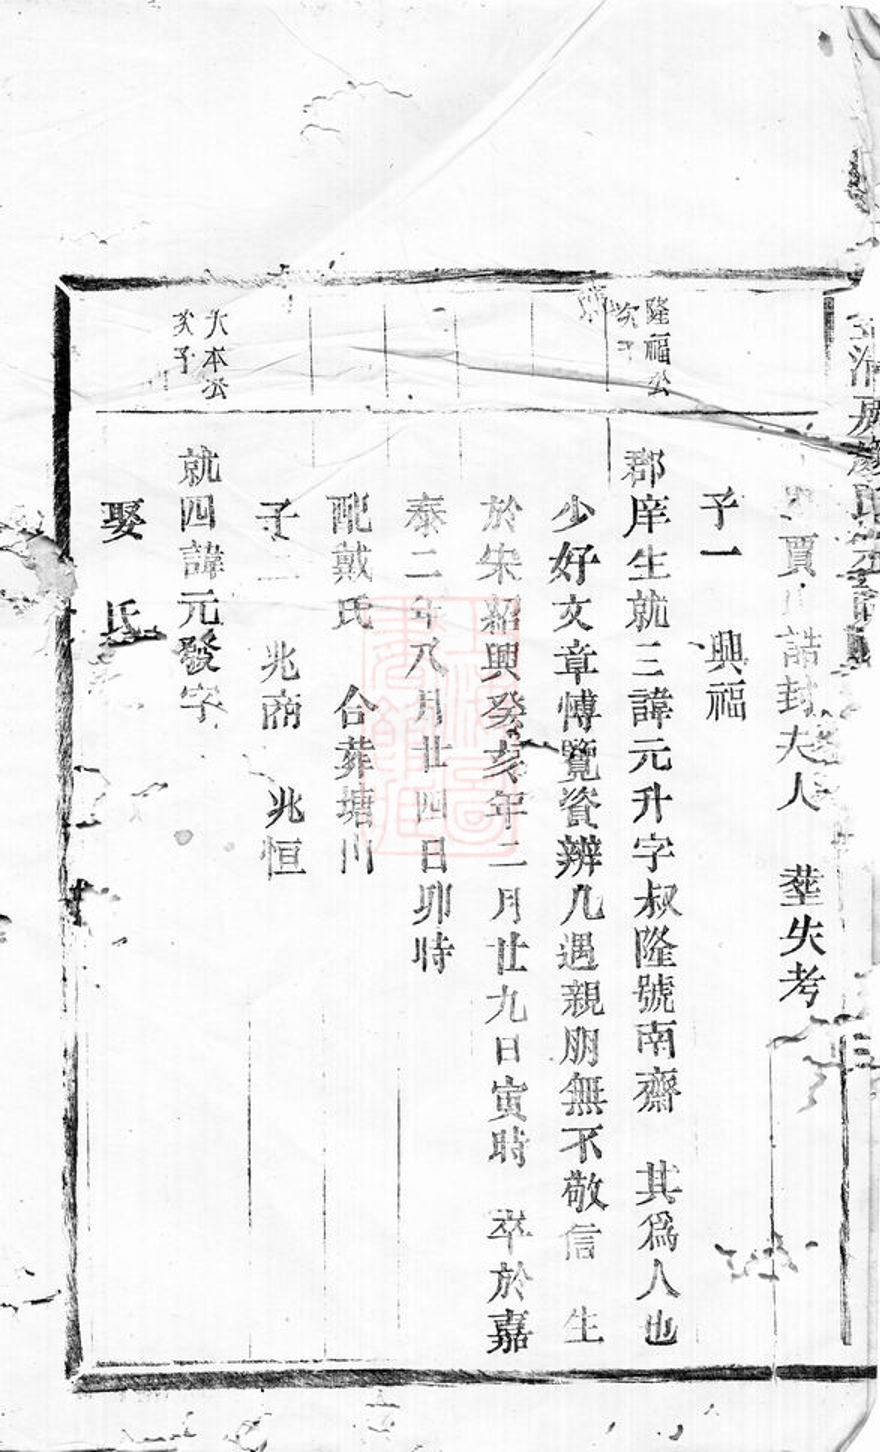 賈 誥封夫人 塟失考
子一 興福
隆福公
次子
郡庠生就三諱元升字叔隆號南齋 其爲人也
少好文章博覽資辨凢遇親朋無不敬信 生
於宋紹興癸亥年二月廿九日寅時 卒於嘉
泰二年八月廿四日卯時
配戴氏 合葬塘川
子二 兆商 兆恒
大本公
次子
就四諱元發字
娶 氏